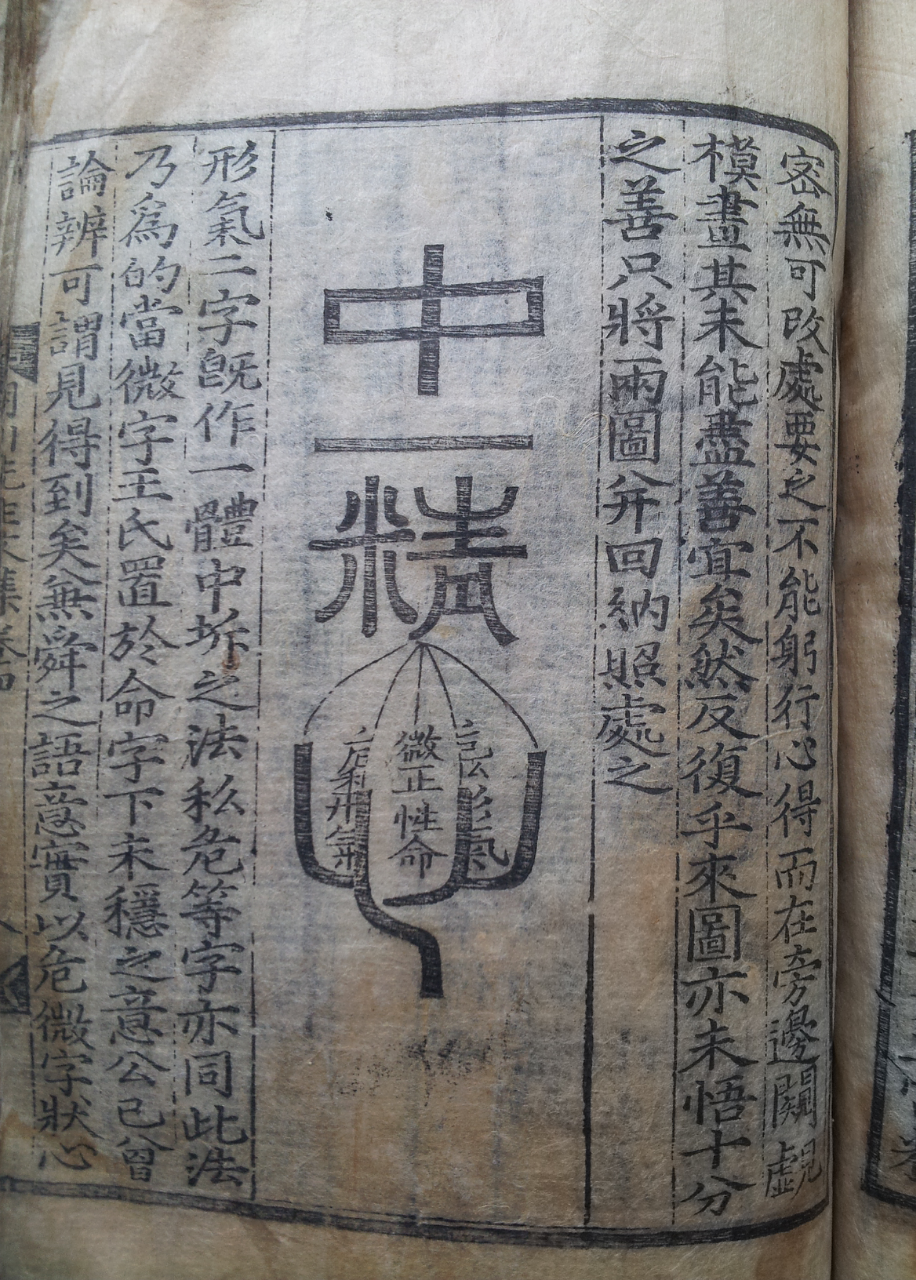 密無可改處要之不能躬行心得而在旁邊闖覷虛
模畫其未能盡善宜矣然反復乎來圖亦未悟十分
之善只將兩圖幷回納照處之
中
一
精
危私形氣
微正性命
危私形氣
形氣二字旣作一體中坼之法私危等字亦同此法
乃爲的當微字王氏置於命字下未穩之意公已曾
論辨可謂見得到矣無舜之語意實以危微字狀心